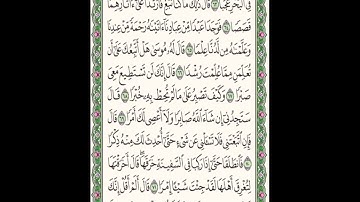 فِي الْبَحْرِ عَجَبًا ٦٣ قَالَ ذَٰلِكَ مَا كُنَّا نَبْغِ فَارْتَدَّا عَلَىٰ آثَارِهِمَا
قَصَصًا ٦٤ فَوَجَدَا عَبْدًا مِّنْ عِبَادِنَا آتَيْنَاهُ رَحْمَةً مِّنْ عِندِنَا
وَعَلَّمْنَاهُ مِن لَّدُنَّا عِلْمًا ٦٥ قَالَ لَهُ مُوسَىٰ هَلْ أَتَّبِعُكَ عَلَىٰ أَن
تُعَلِّمَنِ مِمَّا عُلِّمْتَ رُشْدًا ٦٦ قَالَ إِنَّكَ لَن تَسْتَطِيعَ مَعِيَ
صَبْرًا ٦٧ وَكَيْفَ تَصْبِرُ عَلَىٰ مَا لَمْ تُحِطْ بِهِ خُبْرًا ٦٨ قَالَ
سَتَجِدُنِي إِن شَاءَ اللَّهُ صَابِرًا وَلَا أَعْصِي لَكَ أَمْرًا ٦٩ قَالَ
فَإِنِ اتَّبَعْتَنِي فَلَا تَسْأَلْنِي عَن شَيْءٍ حَتَّىٰ أُحْدِثَ لَكَ مِنْهُ ذِكْرًا
٧٠ فَانطَلَقَا حَتَّىٰ إِذَا رَكِبَا فِي السَّفِينَةِ خَرَقَهَا قَالَ أَخَرَقْتَهَا
لِتُغْرِقَ أَهْلَهَا لَقَدْ جِئْتَ شَيْئًا إِمْرًا ٧١ قَالَ أَلَمْ أَقُلْ إِنَّكَ